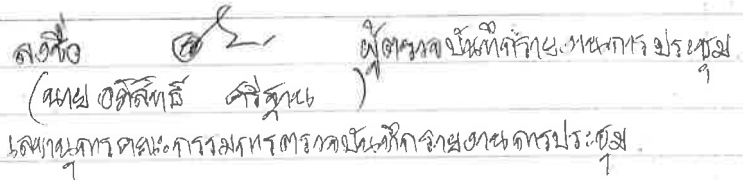 ลงชื่อ ผู้ตรวจบันทึกรายงานการประชุม
(นายอภิสิทธิ์ ศรีฐาน)
เลขานุการคณะกรรมการตรวจบันทึกรายงานการประชุม